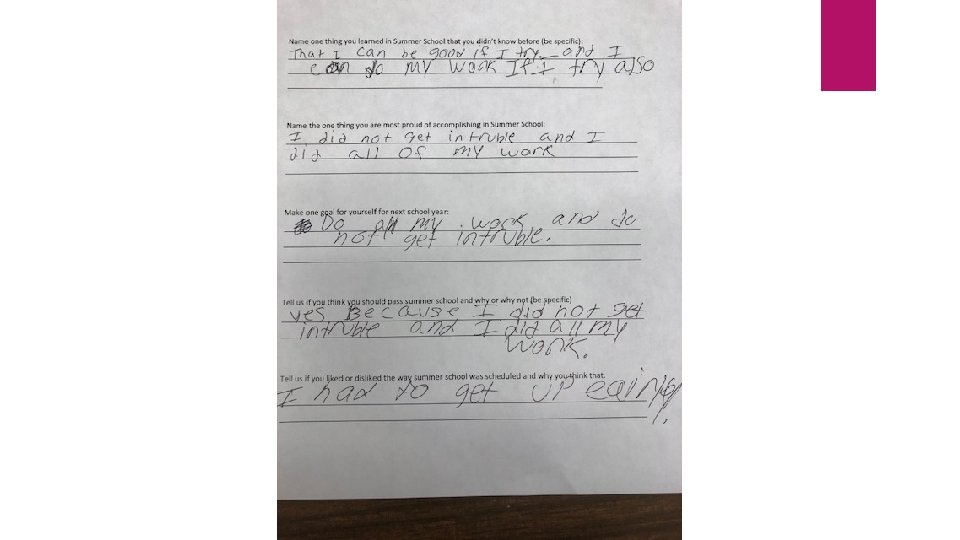 Name one thing you learned in Summer School that you didn't know before (be specific):
That I can be good if I try and I
can do my work If I try also
Name the one thing you are most proud of accomplishing in Summer School:
I did not get intruble and I
did all of my work
Make one goal for yourself for next school year:
Do all my work and do
not get intruble.
Tell us if you think you should pass summer school and why or why not (be specific)
yes Because I did not get
intruble and I did all my
work.
Tell us if you liked or disliked the way summer school was scheduled and why you think that.
I had to get up